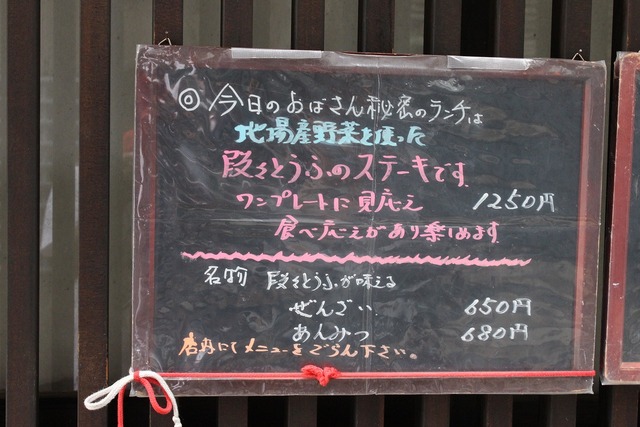 ◎今日のおばさん秘密のランチは
地場産野菜を使った
段々とうふのステーキです
ワンプレートに見応え 1250円
食べ応えがあり楽しめます
名物 段々とうふが味える
ぜんざい 650円
あんみつ 680円
店内にてメニューをごらん下さい。